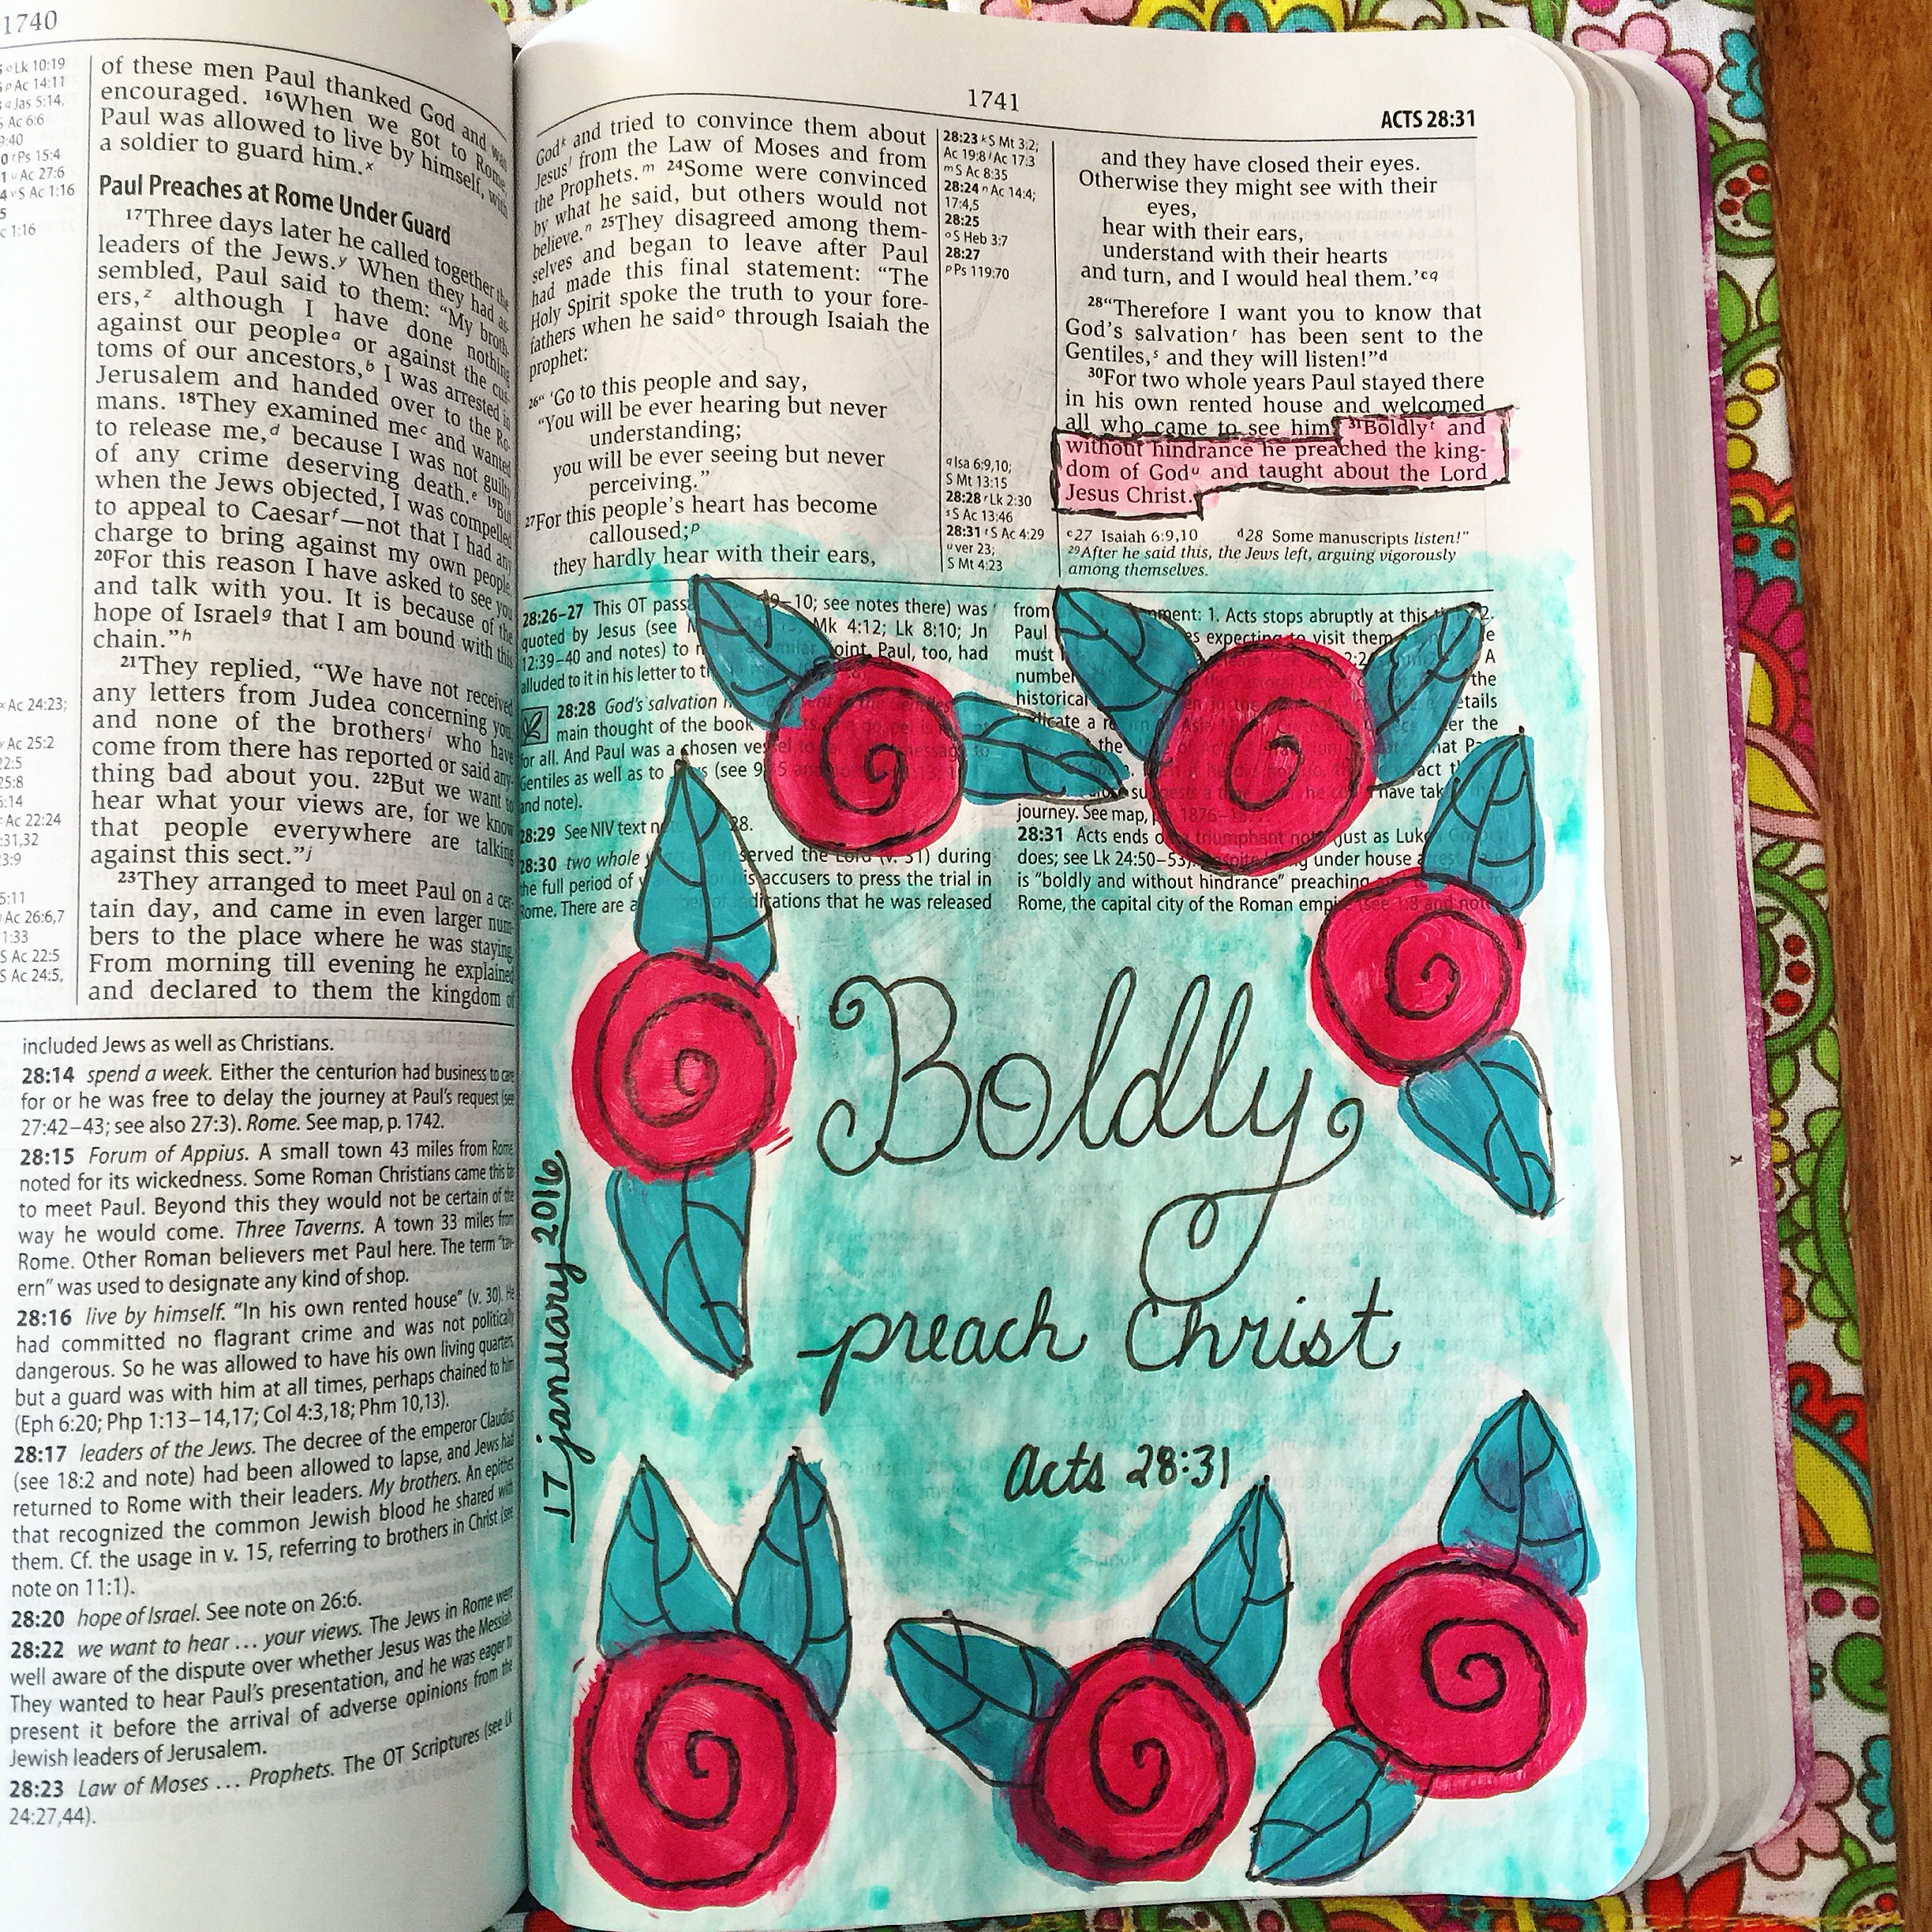 1740
o Lk 10:19
p Ac 14:11
q Jas 5:14,
Ac 6:6
9:40
r Ps 15:4
u Ac 27:6
v S Ac 1:16
5
c 1:16
of these men Paul thanked God and was
encouraged. 16When we got to Rome,
Paul was allowed to live by himself, with
a soldier to guard him.x
Paul Preaches at Rome Under Guard
17Three days later he called together the
leaders of the Jews.y When they had as-
sembled, Paul said to them: “My broth-
ers,z although I have done nothing
against our peoplea or against the cus-
toms of our ancestors,b I was arrested in
Jerusalem and handed over to the Ro-
mans. 18They examined mec and wanted
to release me,d because I was not guilty
of any crime deserving death.e 19But
when the Jews objected, I was compelled
to appeal to Caesarf—not that I had any
charge to bring against my own people.
20For this reason I have asked to see you
and talk with you. It is because of the
hope of Israelg that I am bound with this
chain.”h
21They replied, “We have not received
any letters from Judea concerning you,
and none of the brothersi who have
come from there has reported or said any-
thing bad about you. 22But we want to
hear what your views are, for we know
that people everywhere are talking
against this sect.”j
23They arranged to meet Paul on a cer-
tain day, and came in even larger num-
bers to the place where he was staying.
From morning till evening he explained
and declared to them the kingdom of
x Ac 24:23;
y Ac 25:2
22:5
25:8
6:14
Ac 22:24
:31,32
3:9
5:11
Ac 26:6,7
1:33
S Ac 22:5
S Ac 24:5,
included Jews as well as Christians.
28:14 spend a week. Either the centurion had business to care
for or he was free to delay the journey at Paul’s request (see
27:42–43; see also 27:3). Rome. See map, p. 1742.
28:15 Forum of Appius. A small town 43 miles from Rome
noted for its wickedness. Some Roman Christians came this far
to meet Paul. Beyond this they would not be certain of the
way he would come. Three Taverns. A town 33 miles from
Rome. Other Roman believers met Paul here. The term “tav-
ern” was used to designate any kind of shop.
28:16 live by himself. “In his own rented house” (v. 30). He
had committed no flagrant crime and was not politically
dangerous. So he was allowed to have his own living quarters,
but a guard was with him at all times, perhaps chained to him
(Eph 6:20; Php 1:13–14,17; Col 4:3,18; Phm 10,13).
28:17 leaders of the Jews. The decree of the emperor Claudius
(see 18:2 and note) had been allowed to lapse, and Jews had
returned to Rome with their leaders. My brothers. An epithet
that recognized the common Jewish blood he shared with
them. Cf. the usage in v. 15, referring to brothers in Christ (see
note on 11:1).
28:20 hope of Israel. See note on 26:6.
28:22 we want to hear … your views. The Jews in Rome were
well aware of the dispute over whether Jesus was the Messiah.
They wanted to hear Paul’s presentation, and he was eager to
present it before the arrival of adverse opinions from the
Jewish leaders of Jerusalem.
28:23 Law of Moses … Prophets. The OT Scriptures (see Lk
24:27,44).
1741
ACTS 28:31
Godk and tried to convince them about
Jesusl from the Law of Moses and from
the Prophets.m 24Some were convinced
by what he said, but others would not
believe.n 25They disagreed among them-
selves and began to leave after Paul
had made this final statement: “The
Holy Spirit spoke the truth to your fore-
fathers when he saido through Isaiah the
prophet:
26“ ‘Go to this people and say,
“You will be ever hearing but never
understanding;
you will be ever seeing but never
perceiving.”
27For this people’s heart has become
calloused;p
they hardly hear with their ears,
28:23 k S Mt 3:2;
Ac 19:8 l Ac 17:3
m S Ac 8:35
28:24 n Ac 14:4;
17:4,5
28:25
o S Heb 3:7
28:27
p Ps 119:70
q Isa 6:9,10;
S Mt 13:15
28:28 r Lk 2:30
s S Ac 13:46
28:31 t S Ac 4:29
u ver 23;
S Mt 4:23
and they have closed their eyes.
Otherwise they might see with their
eyes,
hear with their ears,
understand with their hearts
and turn, and I would heal them.’cq
28“Therefore I want you to know that
God’s salvationr has been sent to the
Gentiles,s and they will listen!”d
30For two whole years Paul stayed there
in his own rented house and welcomed
all who came to see him. 31Boldlyt and
without hindrance he preached the king-
dom of Godu and taught about the Lord
Jesus Christ.
c27 Isaiah 6:9,10 d28 Some manuscripts listen!”
29After he said this, the Jews left, arguing vigorously
among themselves.
28:26–27 This OT 9–10; see notes there) was
quoted by Jesus (see Mk 4:12; Lk 8:10; Jn
12:39–40 and notes) to point. Paul, too, had
alluded to it in his letter to
28:28 God’s salvation
main thought of the book
for all. And Paul was a chosen
Gentiles as well as to (see
and note).
28:29 See NIV text 28.
28:30 two whole served the Lord (v. 31) during
the full period of his accusers to press the trial in
Rome. There are a indications that he was released
from 1. Acts stops abruptly at this 2.
Paul expecting to visit them
must A
number the
historical details
indicate a the
the that
have
journey. See map,
28:31 Acts ends triumphant just as Luke
does; see Lk 24:50–53). under house
is “boldly and without hindrance” preaching
Rome, the capital city of the Roman (see 1:8 and
Boldly
preach Christ
Acts 28:31
17 january 2016